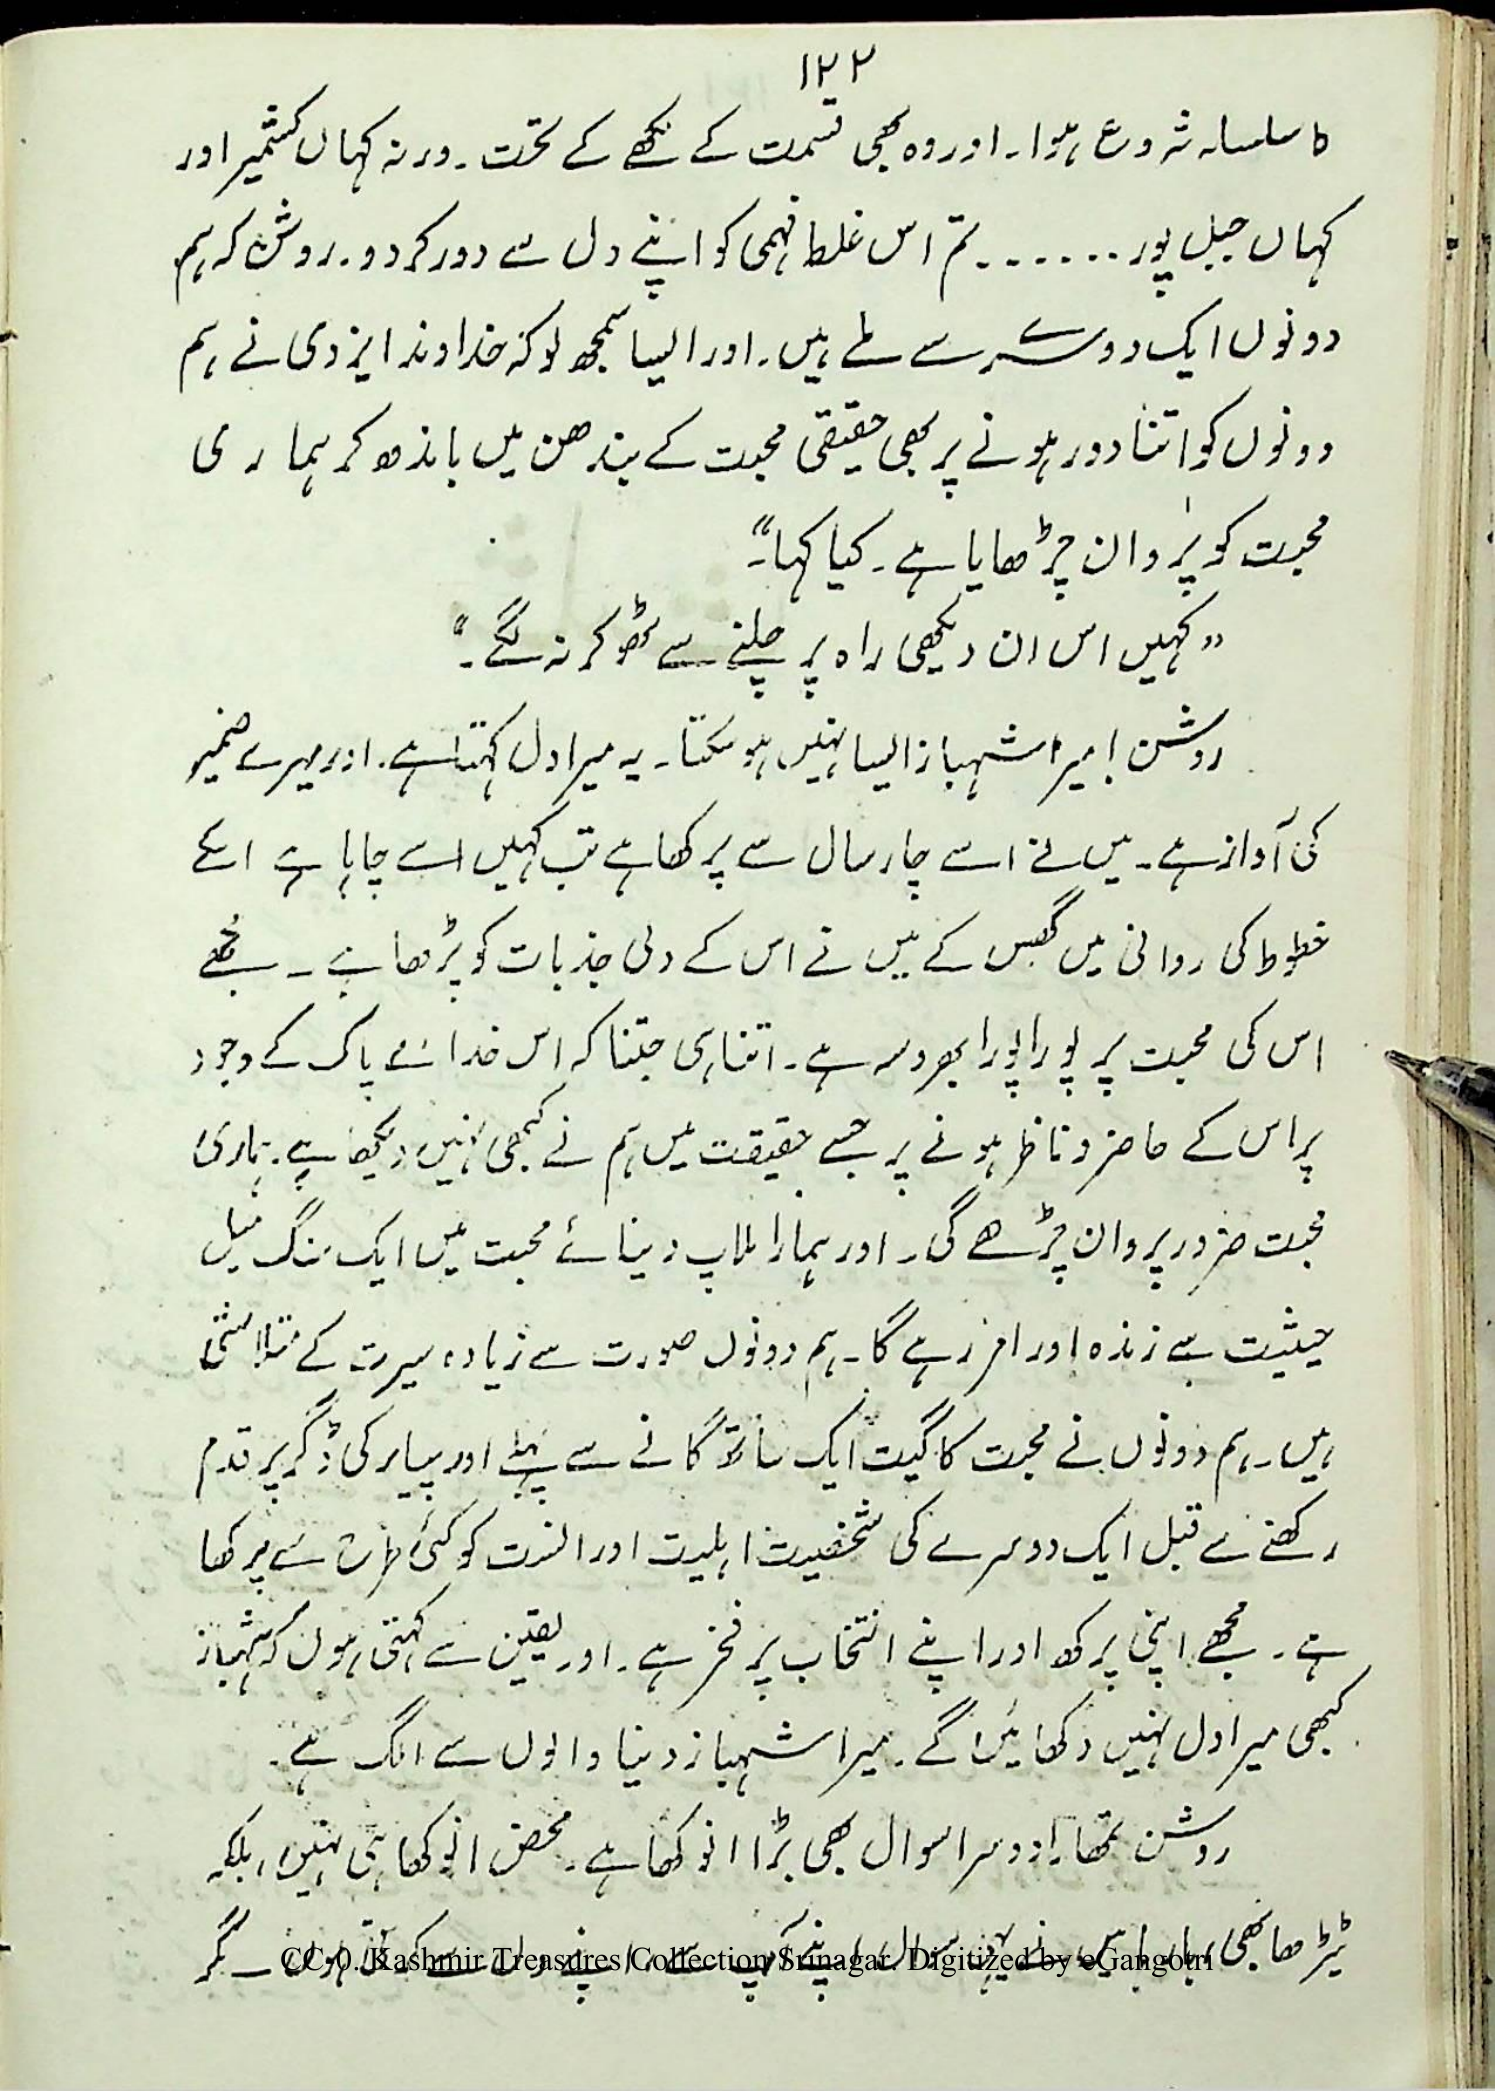 ۱۲۲
کا سلسلہ شروع ہوا۔ اور وہ بھی قسمت کے لکھے کے تحت۔ ورنہ کہاں کشمیر اور
کہاں جبل پور ....... تم اس غلط فہمی کو اپنے دل سے دور کر دو۔ روشن کہ ہم
دونوں ایک دوسرے سے ملے ہیں۔ اور ایسا سمجھ لو کہ خداوند ایزدی نے ہم
دونوں کو اتنا دور ہونے پر بھی حقیقی محبت کے بندھن میں باندھ کر ہماری
محبت کو پروان چڑھایا ہے۔ کیا کہا"۔
"کہیں اس ان دیکھی راہ پر چلنے سے ٹھوکر نہ لگے۔"
روشن! میرا شہباز ایسا نہیں ہو سکتا۔ یہ میرا دل کہتا ہے۔ اور میرے ضمیر
کی آواز ہے۔ میں نے اسے چار سال سے پرکھا ہے تب کہیں اسے چاہا ہے اسکے
خطوط کی روانی میں گھس کے میں نے اس کے دلی جذبات کو پڑھا ہے ۔ مجھے
اس کی محبت پر پورا پورا بھروسہ ہے۔ اتنا ہی جتنا کہ اس خدائے پاک کے وجود
پر اس کے حاضر و ناظر ہونے پر جسے حقیقت میں ہم نے کبھی نہیں دیکھا ہے۔ ہماری
محبت ضرور پروان چڑھے گی۔ اور ہمارا ملاپ دنیائے محبت میں ایک سنگ میل
حیثیت سے زندہ اور امر رہے گا۔ ہم دونوں صورت سے زیادہ سیرت کے متلاشی
ہیں۔ ہم دونوں نے محبت کا گیت ایک ساتھ گانے سے پہلے اور پیار کی ڈگر پر قدم
رکھنے سے قبل ایک دوسرے کی شخصیت اہلیت اور انست کو کئی طرح سے پرکھا
ہے۔ مجھے اپنی پرکھ اور اپنے انتخاب پر فخر ہے۔ اور یقین سے کہتی ہوں کہ شہباز
کبھی میرا دل نہیں دکھائیں گے۔ میرا شہباز دنیا والوں سے الگ ہے۔
روشن تمھارا دوسرا سوال بھی بڑا انوکھا ہے۔ محض انوکھا ہی نہیں، بلکہ
ٹیڑھا بھی، ہاں ہاں میں نے یہی سوال اپنے آپ سے، اپنے دل سے ہوں۔ مگر
CC-0. Kashmir Treasures Collection Srinagar. Digitized by eGangotri